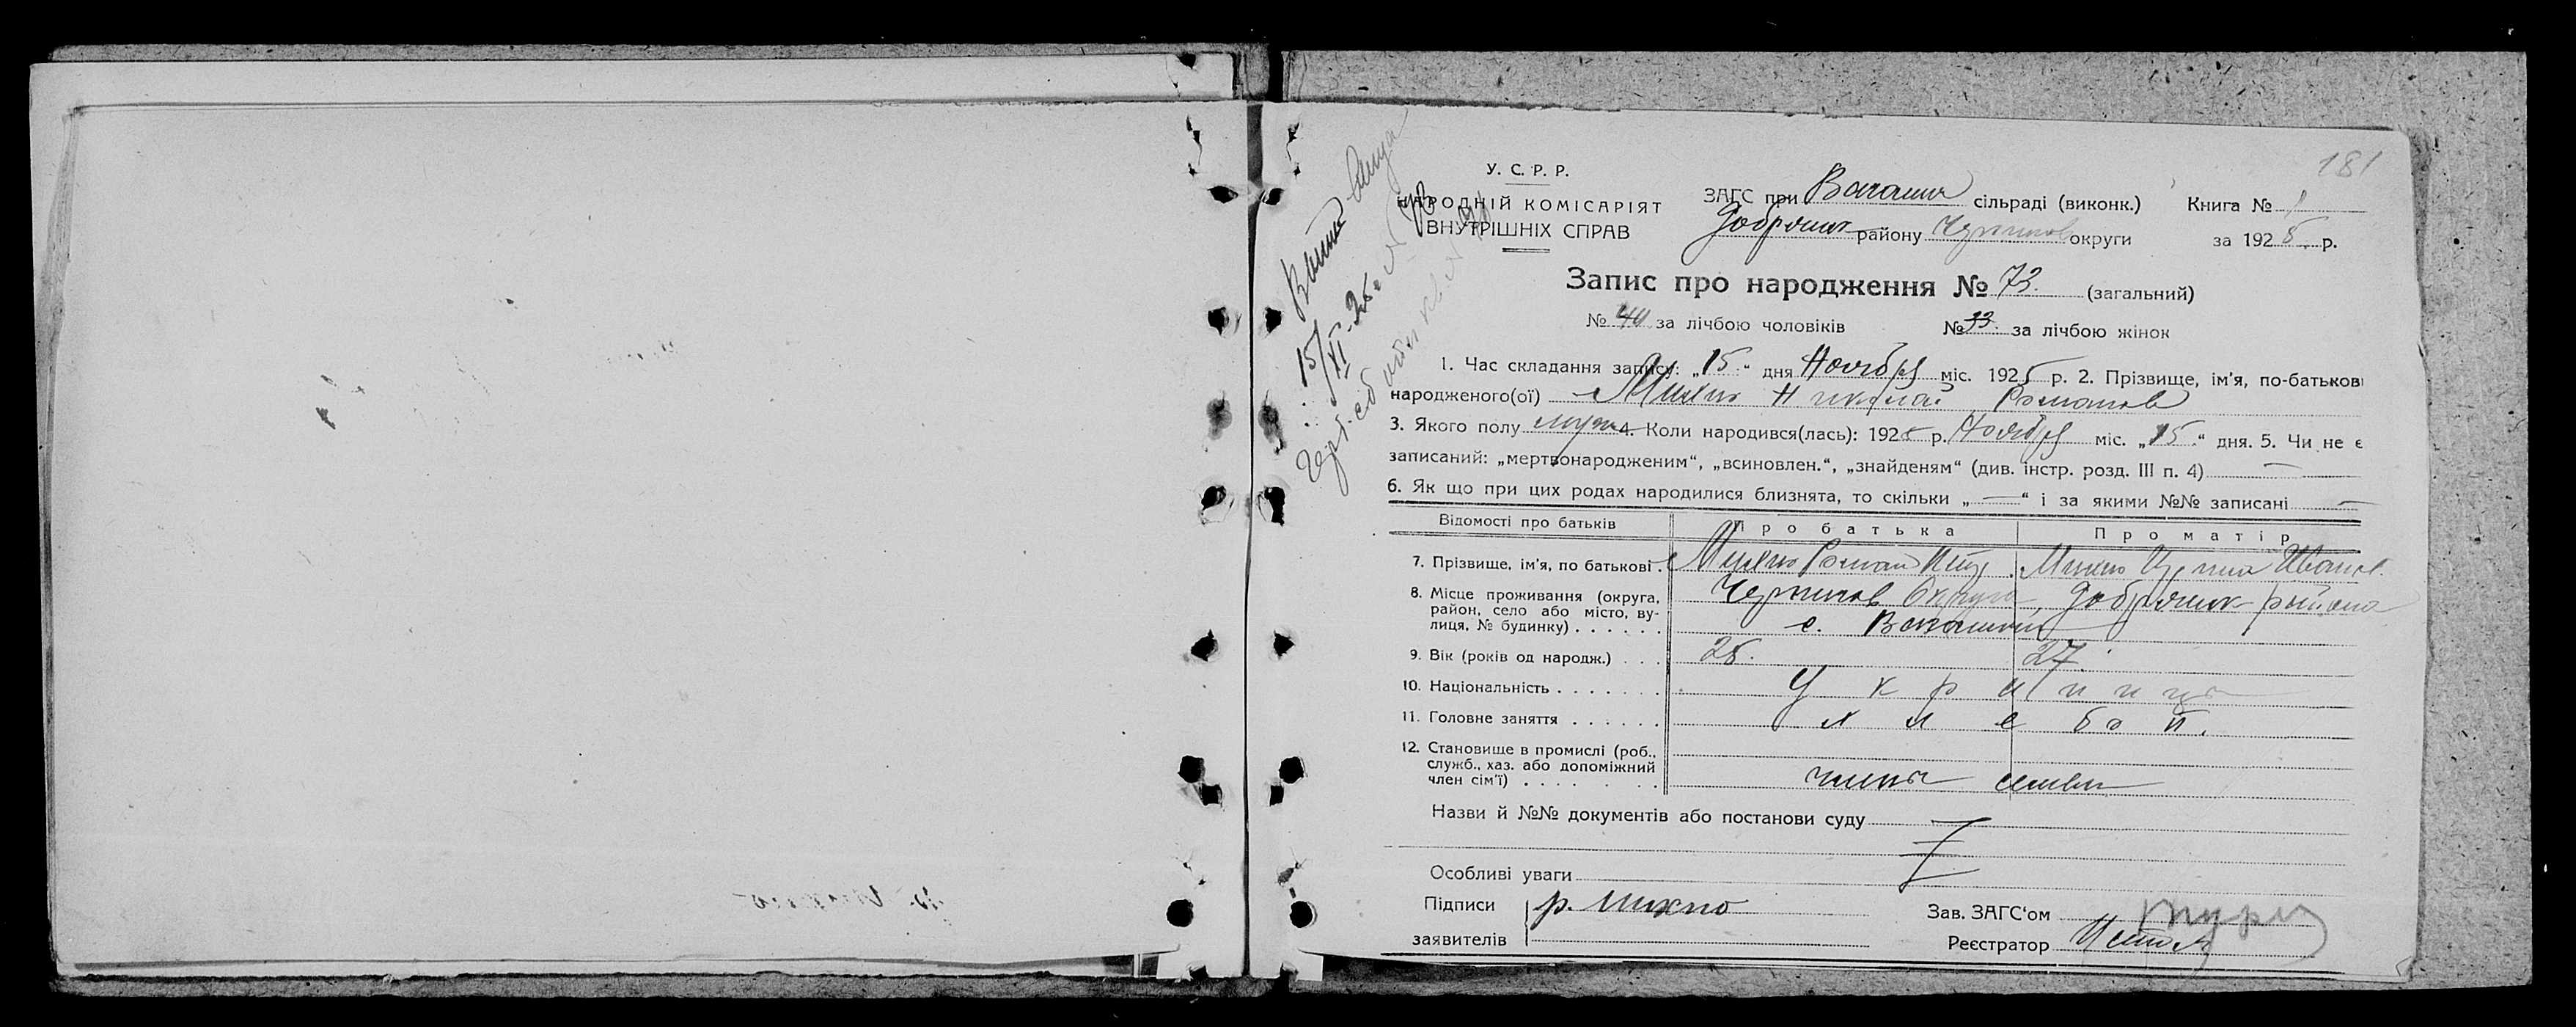 181
У. С. Р. Р.
НАРОДНІЙ КОМІСАРІЯТ
ВНУТРІШНІХ СПРАВ
ЗАГС при сільраді (виконк.) Книга №
Добрянск району Чернигов округи за 1925 р.
Запис про народження № 73. (загальний)
№ 40 за лічбою чоловіків № 33. за лічбою жінок
1. Час складання запису: „15.“ дня Ноября міс. 1925 р. 2. Прізвище, ім'я, по-батькові
народженого(ої) Михно Николай Романов
3. Якого полу муж. 4. Коли народився(лась): 1925 р. Ноября міс. „15.“ дня. 5. Чи не є
записаний: „мертвонародженим“, „всиновлен.“, „знайденям“ (див. інстр. розд. III п. 4) —
6. Як що при цих родах народилися близнята, то скільки „—“ і за якими №№ записані —
Відомості про батьків Про батька Про матір
7. Прізвище, ім'я, по батькові . Михно Роман Михно Иванов.
8. Місце проживання (округа, район, село або місто, вулиця, № будинку) . . . . . . Чернигов Округа, Добрянск района
с.
9. Вік (років од народж.) . . . 25. 27.
10. Національність . . . . . . . Украинцы
11. Головне заняття . . . . . . хлебоп.
12. Становище в промислі (роб., служб., хаз. або допоміжний член сім'ї) . . . . члены семьи
Назви й №№ документів або постанови суду
Особливі уваги
Підписи р. Михно Зав. ЗАГС‘ом
заявителів Реєстратор
15/XI-25 г.